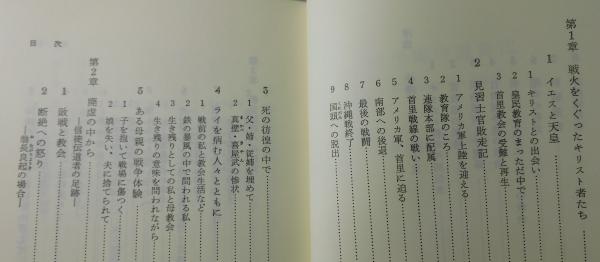 第1章 戦火をくぐったキリスト者たち
1 イエスと天皇
1 キリストとの出会い
2 皇民教育のまっただ中で
3 首里教会の受難と再生
2 見習士官敗走記
1 アメリカ軍上陸を迎える
2 教育隊のころ
3 連隊本部に配属
4 首里戦線の戦い
5 アメリカ軍、首里に迫る
6 南部への後退
7 最後の戦闘
8 沖縄戦終了
9 国頭への脱出
3 死の彷徨の中で
1 父・姉・従姉を埋めて
2 真壁・喜屋武の惨状
4 ライを病む人々とともに
1 戦前の私と教会生活など
2 鉄の暴風の中で問われる私
3 生き残りとしての私と母教会
4 生き残りの意味を問われながら
5 ある母親の戦争体験
1 子を抱いて戦場に傷つく
2 娘を失い、夫に捨てられて
第2章 廃虚の中から
1 敗戦と教会
―信徒伝道者の足跡―
2 断絶への怒り
―饒長良起の場合―
目 次